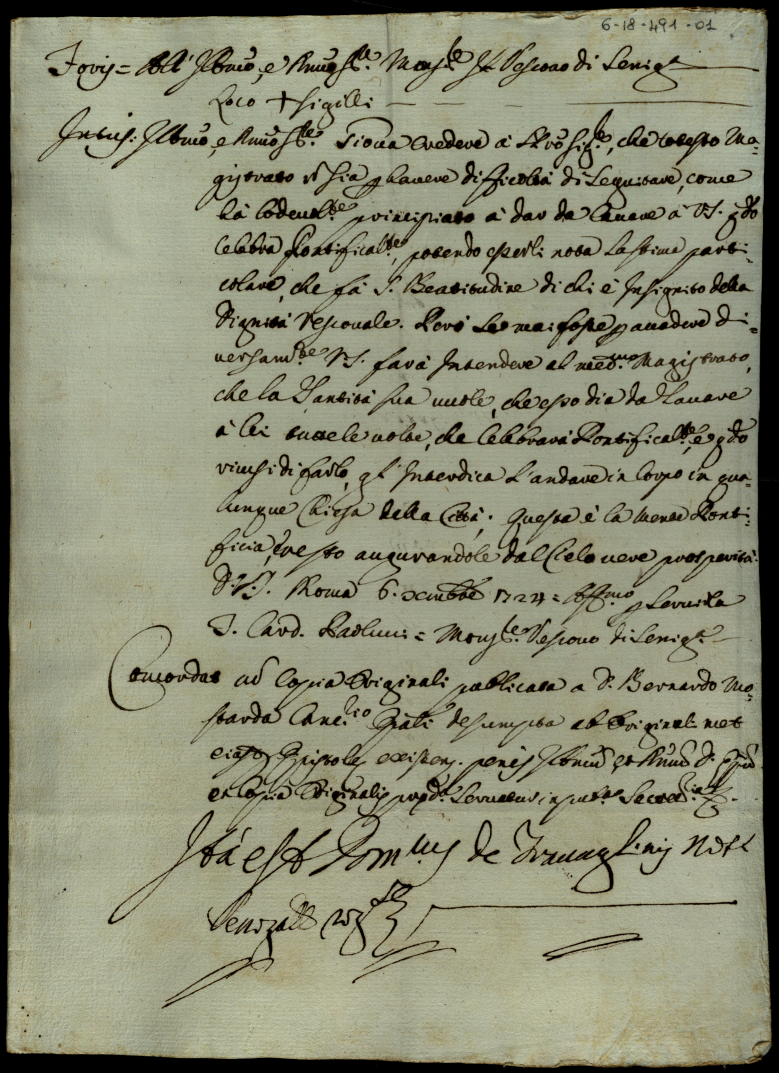 6-18-491-01
Foris = All' Illmo, e Rmo Sre. Monsre. Il Vescovo di Senigª
Loco + Sigilli
Intus: Illmo, e Rmo Sre. Giova credere à Nro Sigre, che cotesto Ma-
gistrato non sia per havere difficoltà di seguitare, come
hà lodevolte principiato à dar da lavare à VS. qdo
celebra Pontificalte, potendo esserli nota la stima parti-
colare, che fà S. Beatitudine di chi è insignito della
dignità Vescovale. Però se mai fosse per accadere di-
versamte VS. farà intendere al medmo Magistrato,
che la Santità sua vuole, che esso dia da lavare
à lei tutte le volte, che celebrarà Pontificalte, e qdo
ricusi di farlo, gl' interdica l'andare in corpo in qua-
lunque Chiesa della Città. Questa è la mente Ponti-
ficia, e resto augurandole dal Cielo vere prosperità.
D. VS. Roma 6. Xmbre 1724 = Affmo per servirla
F. Card. Paolucci = Monsre. Vescovo di Senigª
Concordat cum Copia Originali publicata a D. Bernardo Mo-
starda Cancrio desumpta ab Originali met
Epistola existen. penes Illmum et Rmum D. Epum
et Copia Originalis pred. servatur in Secret.
Ita est Domcus de Nots
Senogall rogs